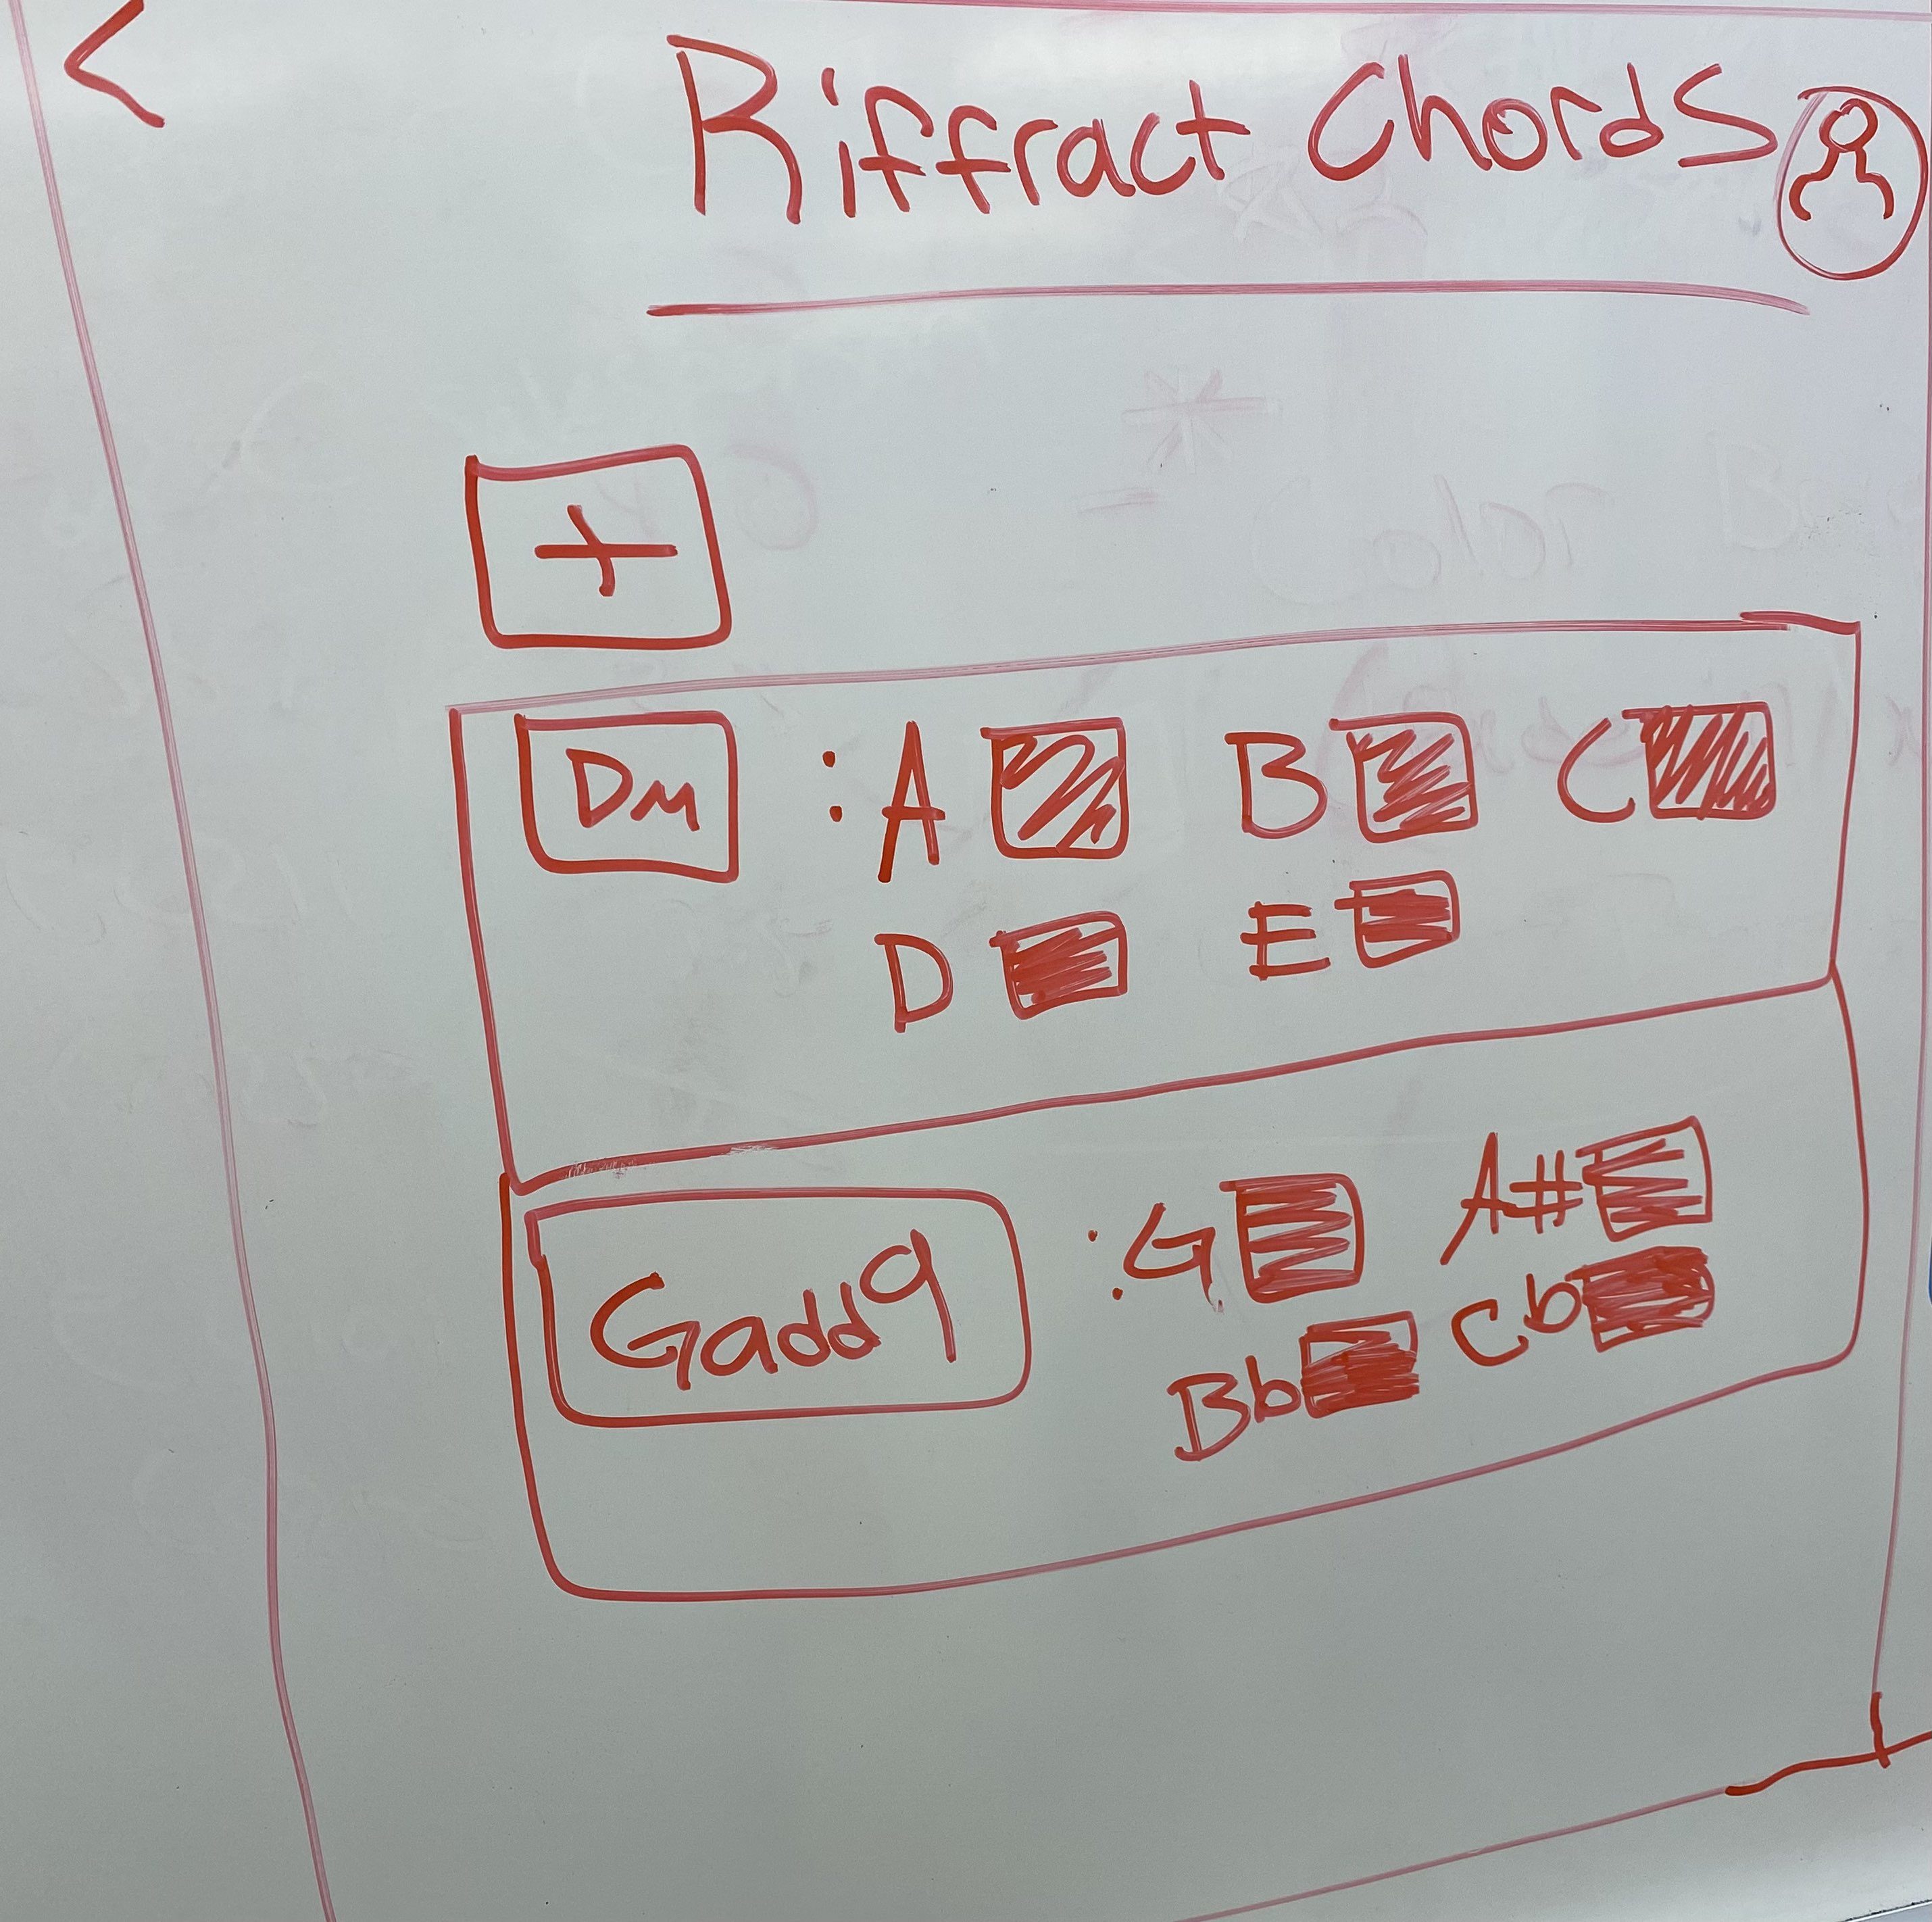 <
Riffract Chords
+
Dm : A B C
D E
Gadd9 : G A#
Bb Cb